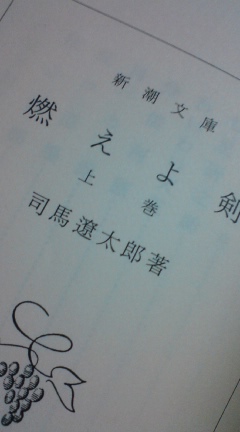 新潮文庫
燃えよ剣
上巻
司馬遼太郎著